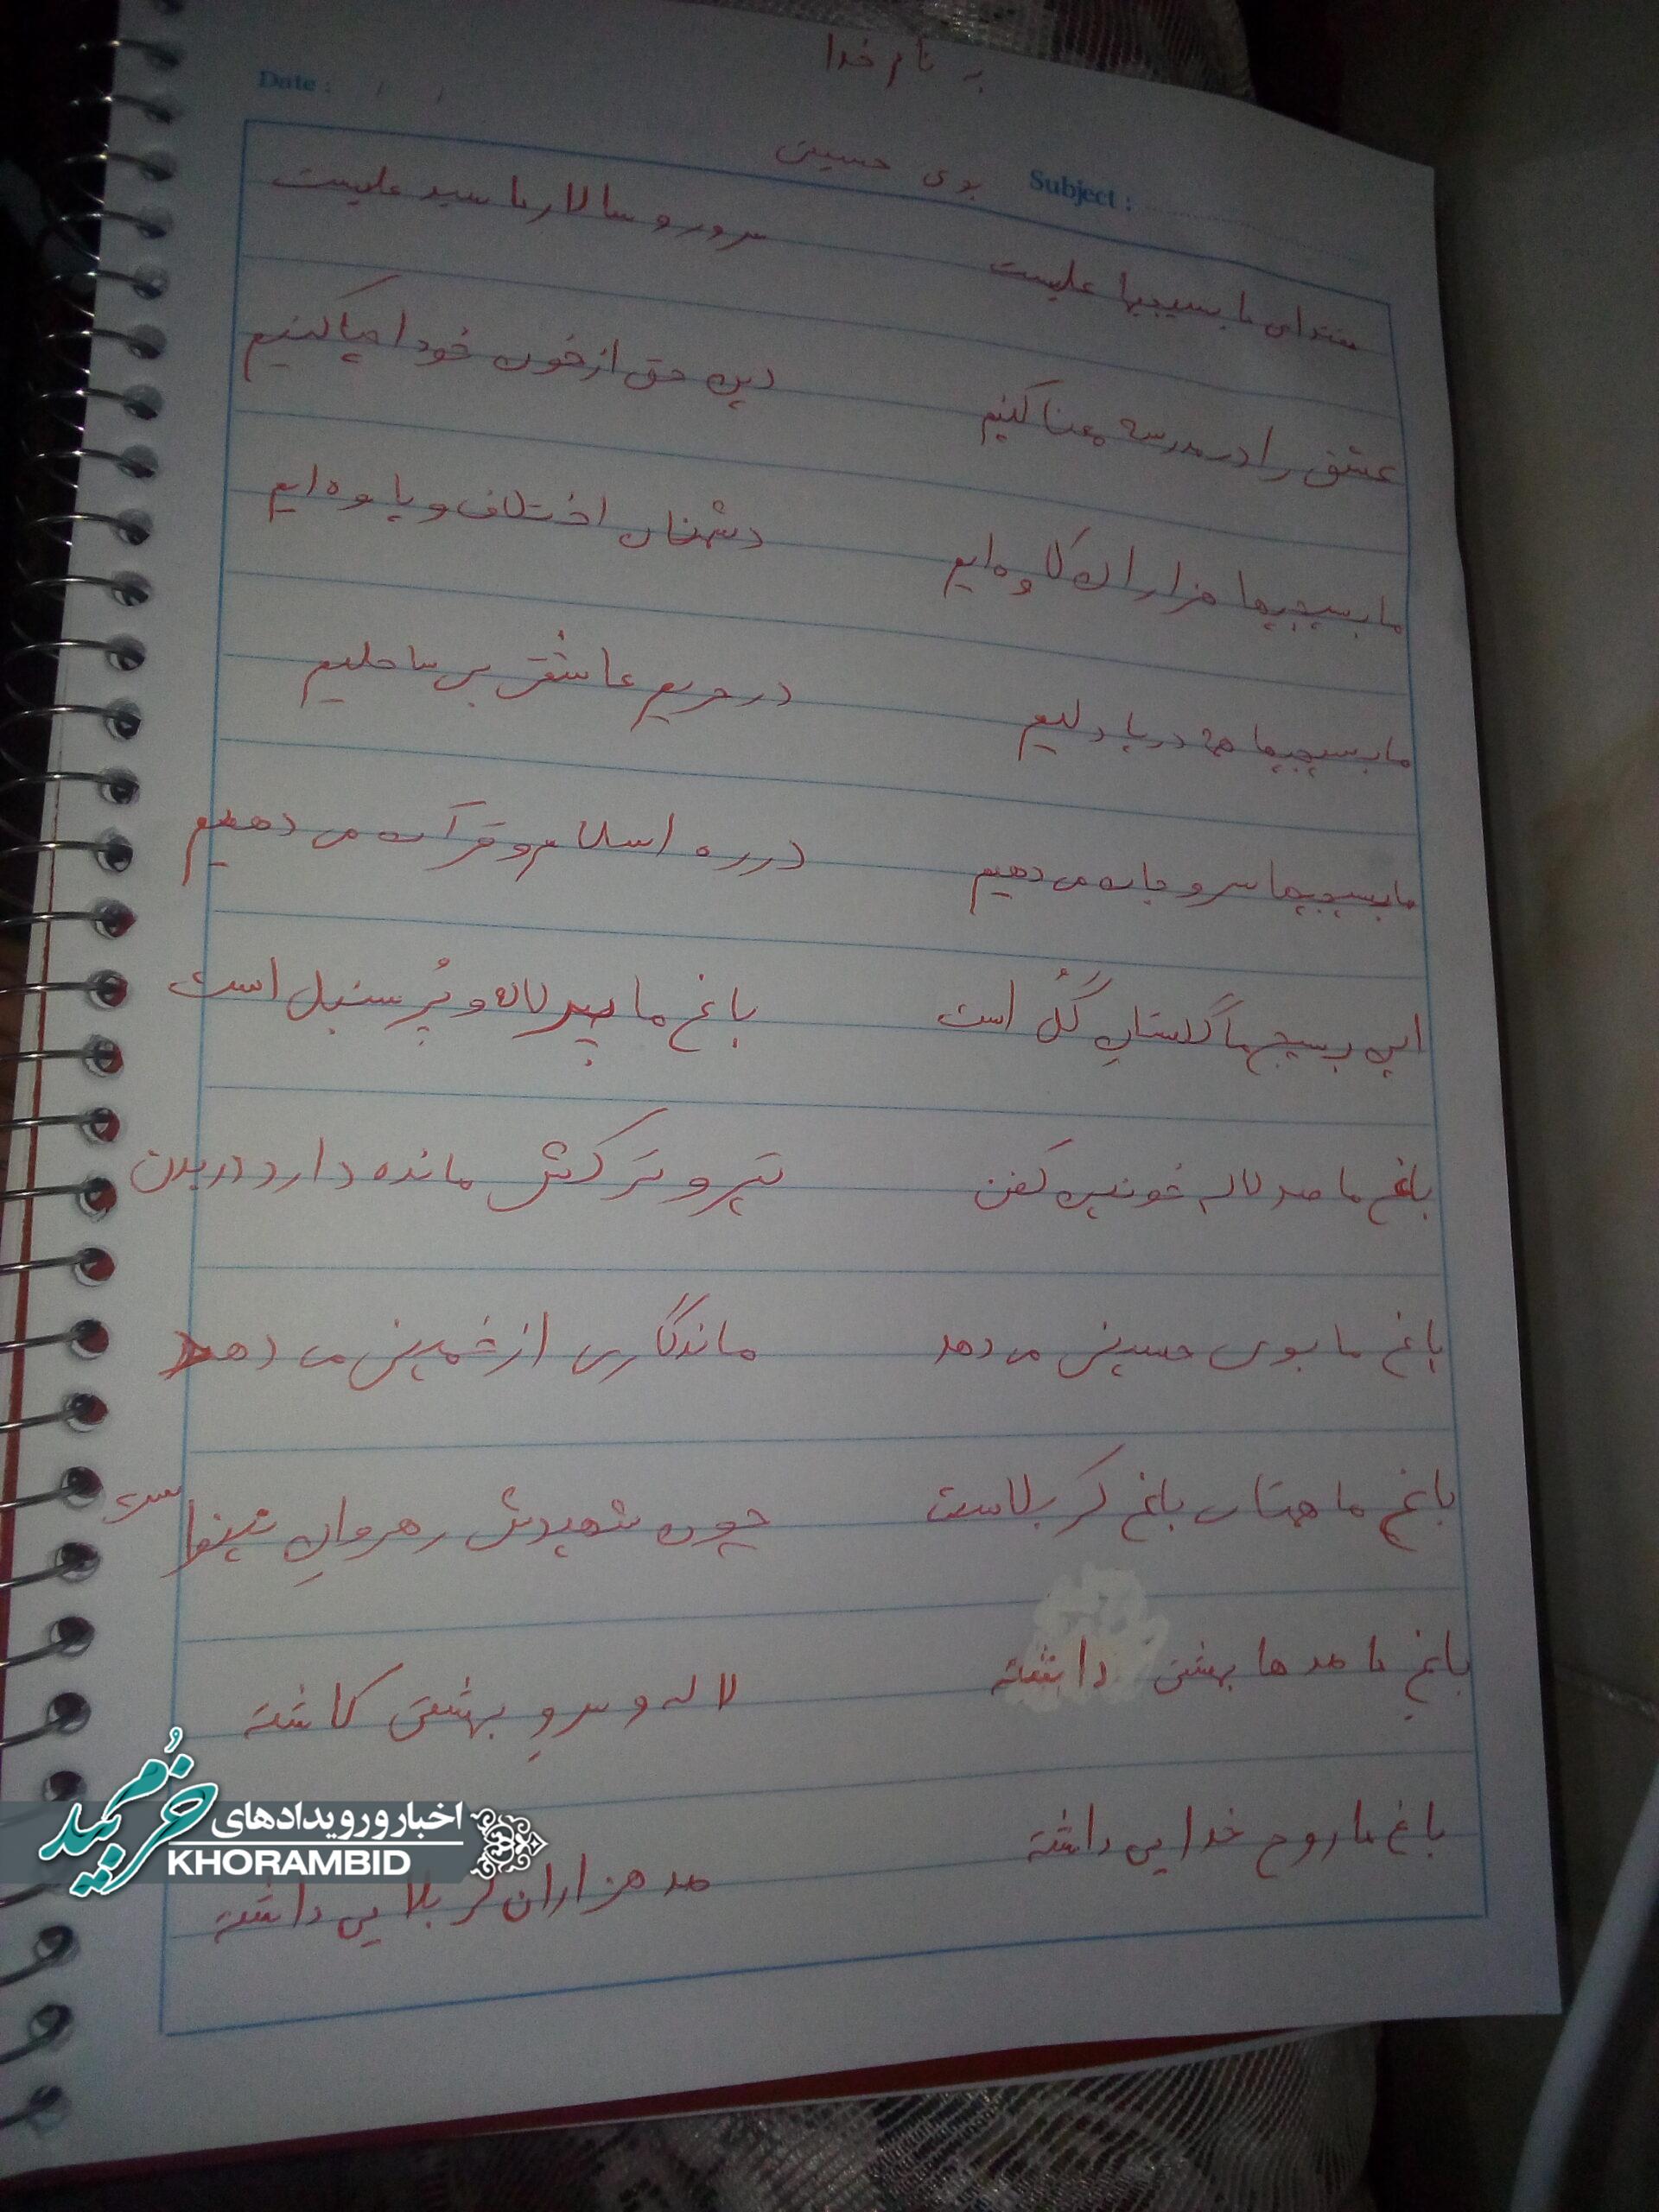 به نام خدا
Date : / /
Subject :
بوی حسین
مقتدای ما بسیجیها علیست سرور و سالار ما سید علیست
عشق را در مدرسه معنا کنیم دین حق از خون خود احیا کنیم
ما بسیجیها هزاران کاوه‌ایم دشمنان اختلاف و یاوه‌ایم
ما بسیجیها همه دریا دلیم در حریم عاشقی بر ساحلیم
ما بسیجیها سر و جان می دهیم در ره اسلام و قرآن می دهیم
این بسیجی‌ها گلستانِ گُل است باغ ما پر لاله و پُر سنبل است
باغ ما صد لاله خونین کفن تیر و ترکش مانده دارد در بدن
باغ ما بوی حسینی می دهد ماندگاری از خمینی می دهد
باغ ما همتای باغ کربلاست چون شهیدش رهروانِ نینواست
باغِ ما صدها بهشتی داشته لاله و سروِ بهشتی کاشته
باغ ما روح خدایی داشته صد هزاران کربلایی داشته
خرمبید
اخبار و رویدادهای
KHORAMBID